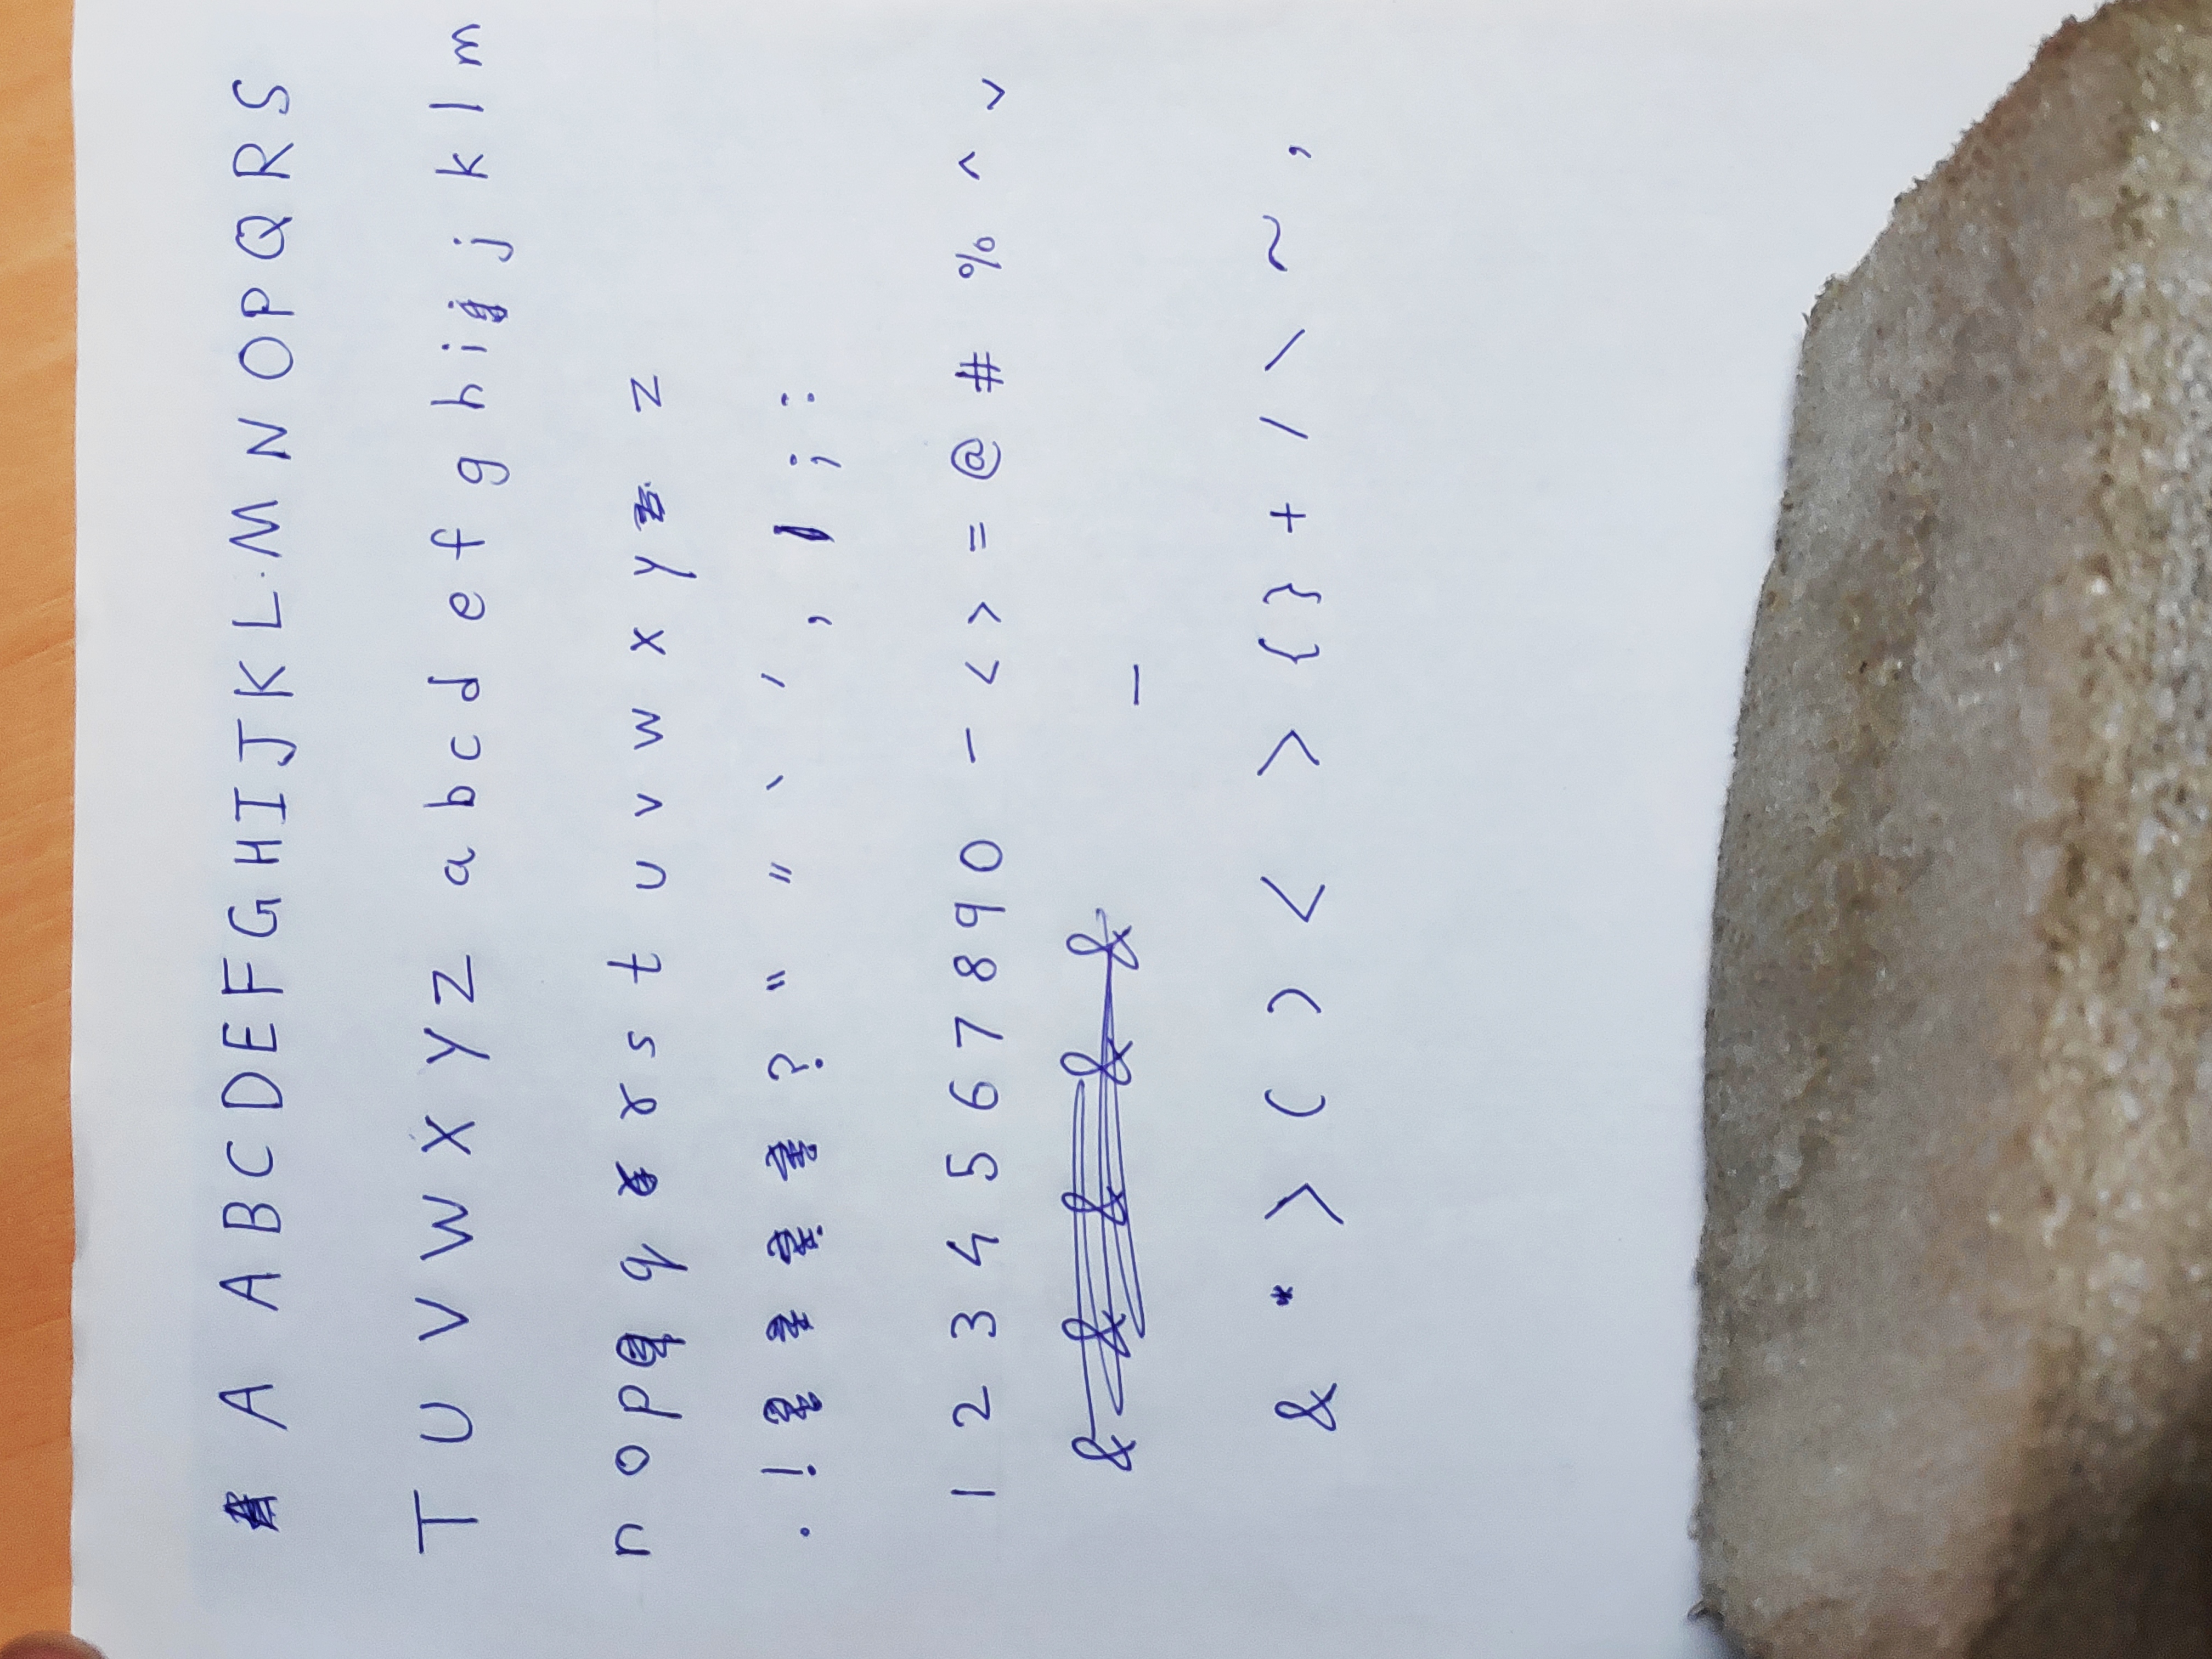 A A B C D E F G H I J K L M N O P Q R S
T U V W X Y Z a b c d e f g h i j k l m
n o p q r s t u v w x y z
. ! ? " " ` ´ , ; :
1 2 3 4 5 6 7 8 9 0 - < > = @ # % ^ ˅
_
& * > ( ) < > { } + / \ ~ ,